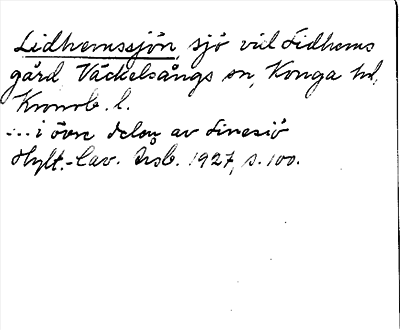 Lidhemssjön, sjö vid Lidhems
gård, Väckelsångs sn, Konga hd,
Kronob. l.
... i övre delen av Linesjö
Hylt.-Cav. Årsb. 1927, s. 100.